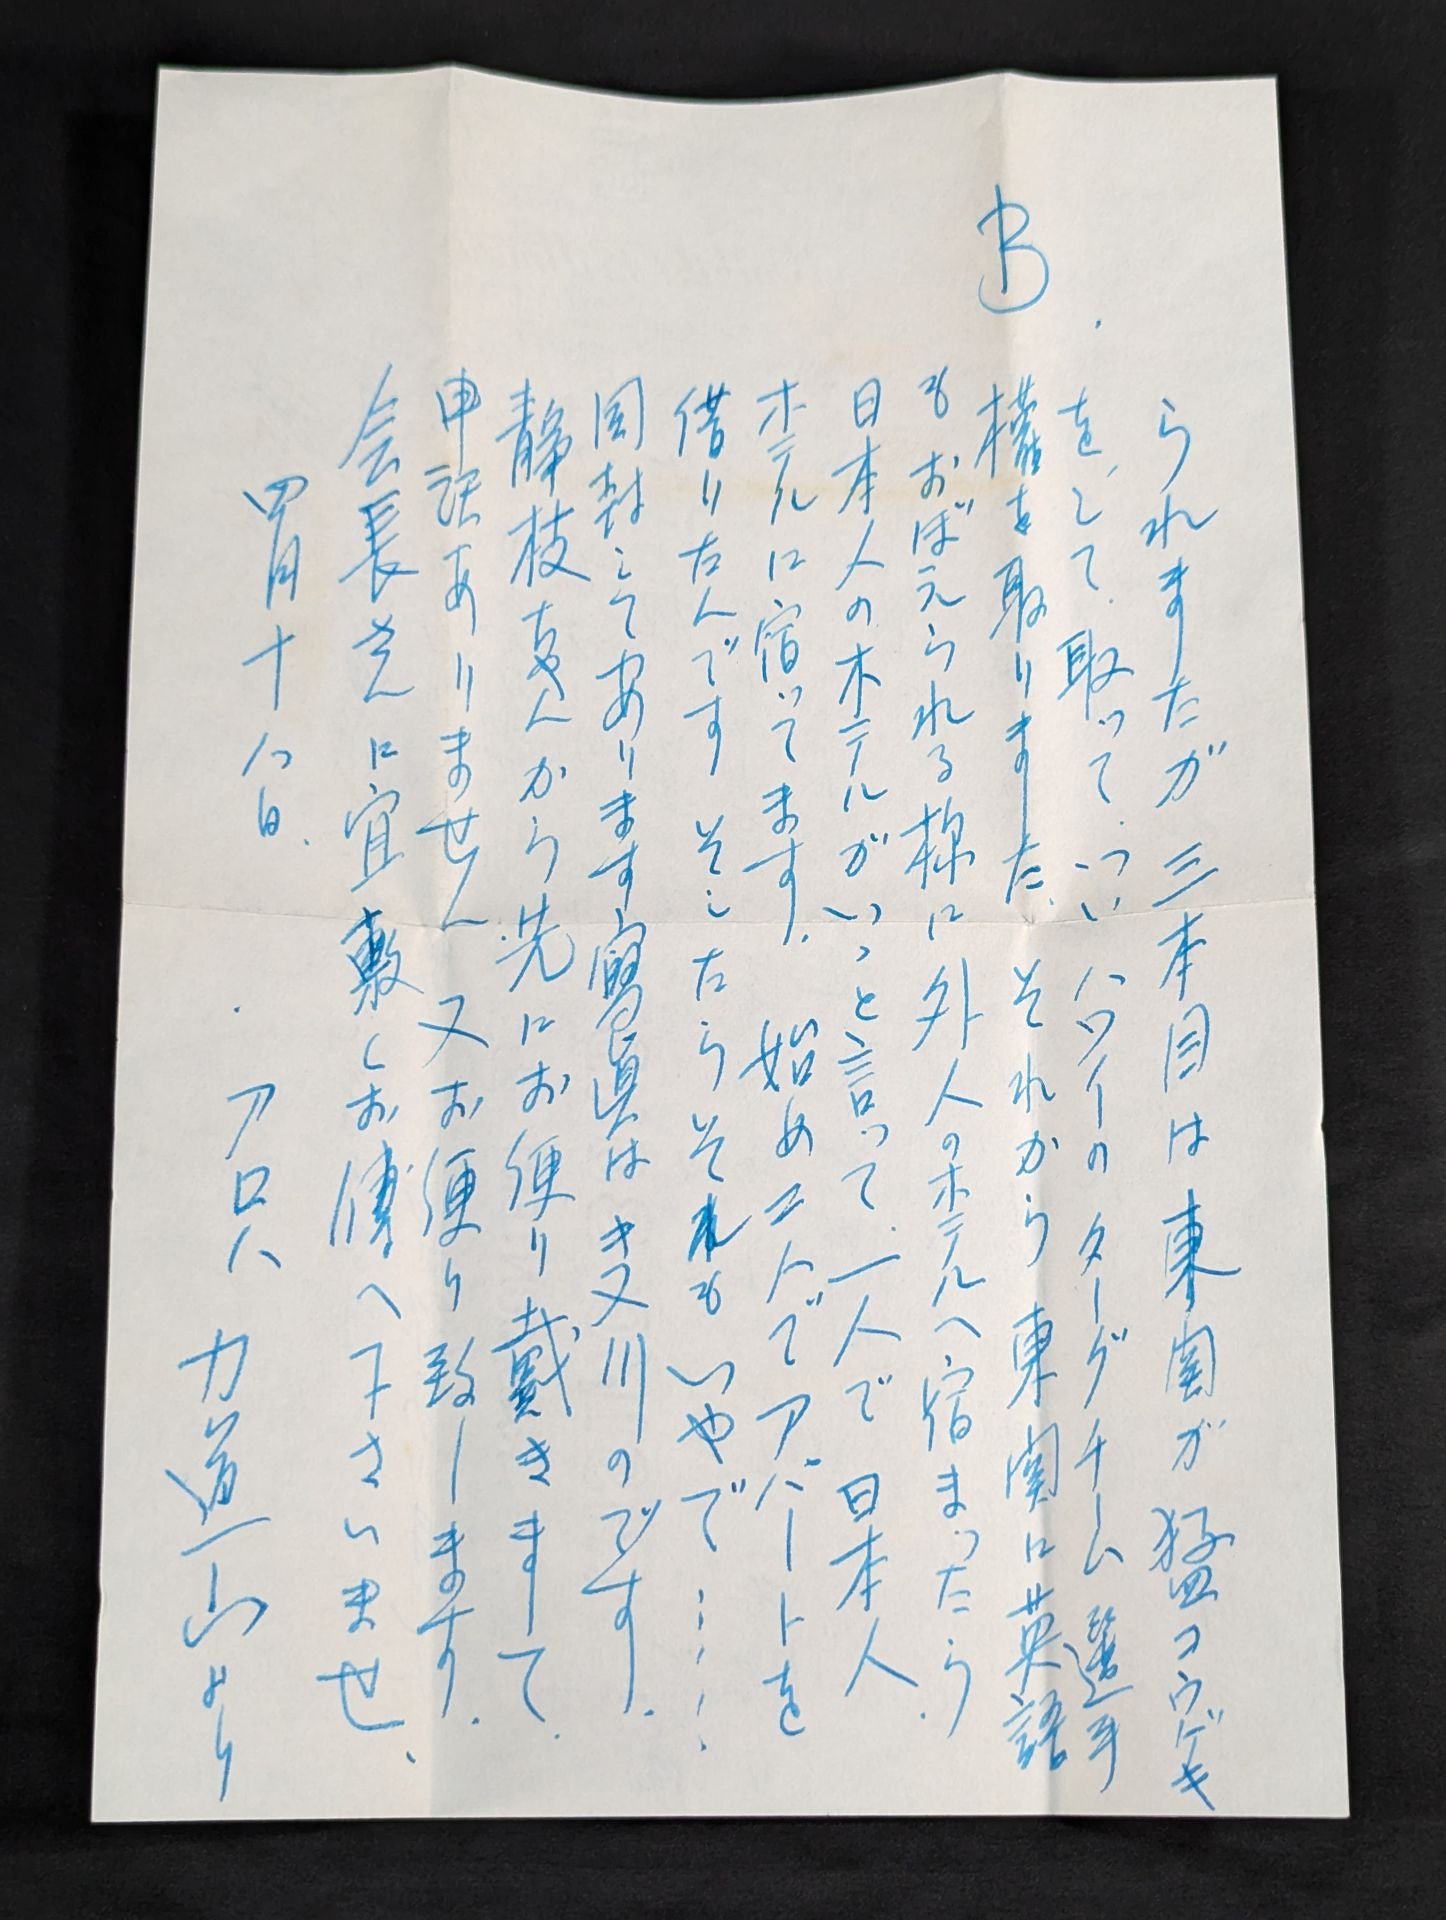 B
られましたが三本目は東関が猛コウゲキ
をして、取って、ついハワイのターグチーム選手
権を取りました、それから東関に英語
もおぼえられる様に外人のホテルへ宿まったら
日本人のホテルがいっと言って、一人で日本人
ホテルに宿ってます。始め二人でアパートを
借りたんです そしたらそれもいやで……
同封してあります寫真はき又川のです。
静枝ちゃんから先にお便り戴きまして、
申訳ありません 又お便り致します。
会長さんに宜敷くお傳へ下さいませ、
四月十八日、
アロハ 力道山より